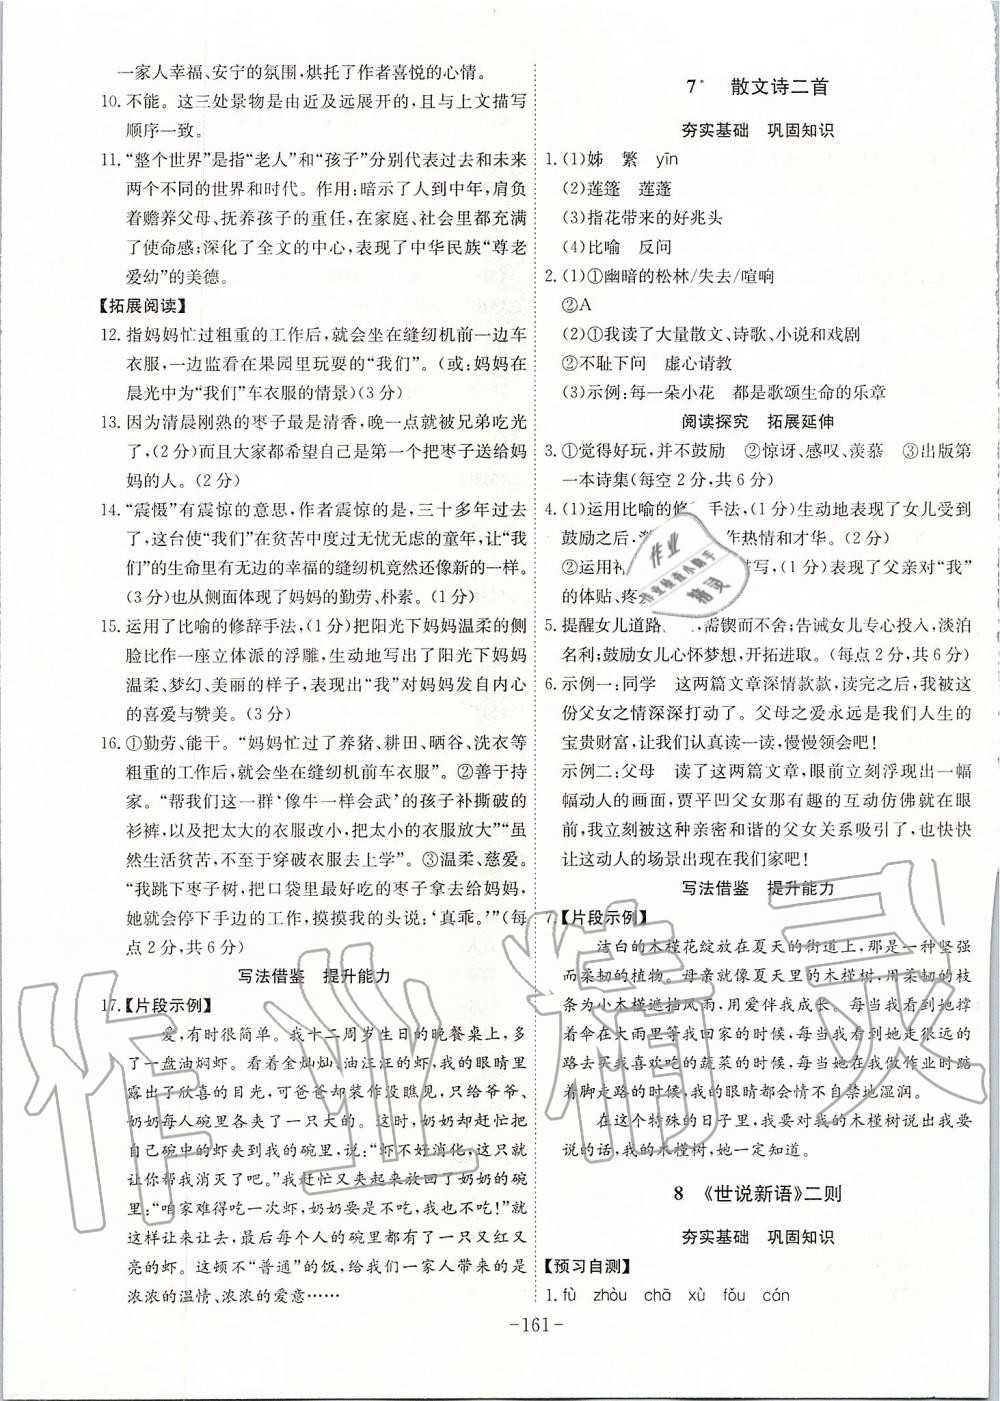 一家人幸福、安宁的氛围,烘托了作者喜悦的心情。
10. 不能。这三处景物是由近及远展开的,且与上文描写
顺序一致。
11. “整个世界”是指“老人”和“孩子”分别代表过去和未来
两个不同的世界和时代。作用:暗示了人到中年,肩负
着赡养父母、抚养孩子的重任,在家庭、社会里都充满
了使命感;深化了全文的中心,表现了中华民族“尊老
爱幼”的美德。
【拓展阅读】
12. 指妈妈忙过粗重的工作后,就会坐在缝纫机前一边车
衣服,一边监看在果园里玩耍的“我们”。(或:妈妈在
晨光中为“我们”车衣服的情景)(3分)
13. 因为清晨刚熟的枣子最是清香,晚一点就被兄弟吃光
了,(2分)而且大家都希望自己是第一个把枣子送给妈
妈的人。(2分)
14. “震慑”有震惊的意思,作者震惊的是,三十多年过去
了,这台使“我们”在贫苦中度过无忧无虑的童年,让“我
们”的生命里有无边的幸福的缝纫机竟然还像新的一样。
(3分)也从侧面体现了妈妈的勤劳、朴素。(1分)
15. 运用了比喻的修辞手法,(1分)把阳光下妈妈温柔的侧
脸比作一座立体派的浮雕,生动地写出了阳光下妈妈
温柔、梦幻、美丽的样子,表现出“我”对妈妈发自内心
的喜爱与赞美。(3分)
16. ①勤劳、能干。“妈妈忙过了养猪、耕田、晒谷、洗衣等
粗重的工作后,就会坐在缝纫机前车衣服”。②善于持
家。“帮我们这一群‘像牛一样会武’的孩子补撕破的
衫裤,以及把太大的衣服改小,把太小的衣服放大”“虽
然生活贫苦,不至于穿破衣服去上学”。③温柔、慈爱。
“我跳下枣子树,把口袋里最好吃的枣子拿去给妈妈,
她就会停下手边的工作,摸摸我的头说:‘真乖。’”(每
点2分,共6分)
写法借鉴 提升能力
17.【片段示例】
爱,有时很简单。我十二周岁生日的晚餐桌上,多
了一盘油焖虾。看着金灿灿、油汪汪的虾,我的眼睛里
露出了欣喜的目光,可爸爸却装作没瞧见,只给爷爷、
奶奶每人碗里各夹了一只大的。这时,奶奶却赶忙把
自己碗中的虾夹到我的碗里,说:“虾不好消化,这只就
让你帮我消灭了吧。”我赶忙又夹起来放到奶奶的碗
里:“咱家难得吃一次虾,奶奶要是不吃,我也不吃!”就
这样让来让去,最后每人的碗里都有了一只又红又
亮的虾。这顿不“普通”的饭,给我们一家人带来的是
浓浓的温情、浓浓的爱意……
7* 散文诗二首
夯实基础 巩固知识
1. (1)姊 繁 yīn
(2)莲篷 莲蓬
(3)指花带来的好兆头
(4)比喻 反问
2. (1)①幽暗的松林/失去/喧响
②A
(2)①我读了大量散文、诗歌、小说和戏剧
②不耻下问 虚心请教
(3)示例:每一朵小花 都是歌颂生命的乐章
阅读探究 拓展延伸
3. ①觉得好玩,并不鼓励 ②惊讶、感叹、羡慕 ③出版第
一本诗集(每空2分,共6分)
4. (1)运用比喻的修 手法,(1分)生动地表现了女儿受到
鼓励之后, 作热情和才华。(2分)
②运用 写,(1分)表现了父亲对“我”
的体贴、疼
5. 提醒女儿道路 ,需锲而不舍;告诫女儿专心投入,淡泊
名利;鼓励女儿心怀梦想,开拓进取。(每点2分,共6分)
6. 示例一:同学 这两篇文章深情款款,读完之后,我被这
份父女之情深深打动了。父母之爱永远是我们人生的
宝贵财富,让我们认真读一读,慢慢领会吧!
示例二:父母 读了这两篇文章,眼前立刻浮现出一幅
幅动人的画面,贾平凹父女那有趣的互动仿佛就在眼
前,我立刻被这种亲密和谐的父女关系吸引了,也快快
让这动人的场景出现在我们家吧!
写法借鉴 提升能力
7.【片段示例】
洁白的木槿花绽放在夏天的街道上,那是一种坚强
而柔韧的植物。母亲就像夏天里的木槿树,用柔韧的枝
条为小木槿遮挡风雨,用爱伴我成长。每当我看到她撑
着伞在大雨里等我回家的时候,每当我看到她走很远的
路去买我喜欢吃的蔬菜的时候,每当她在我做作业时踮
着脚走路的时候,我的眼睛都情不自禁地湿润。
在这个特殊的日子里,我要对我的木槿树说出我要
说的话,我的木槿树,她一定知道。
8 《世说新语》二则
夯实基础 巩固知识
【预习自测】
1. fù zhòu chā xù fǒu cán
-161-
作业检查小助手
精灵
作业精灵